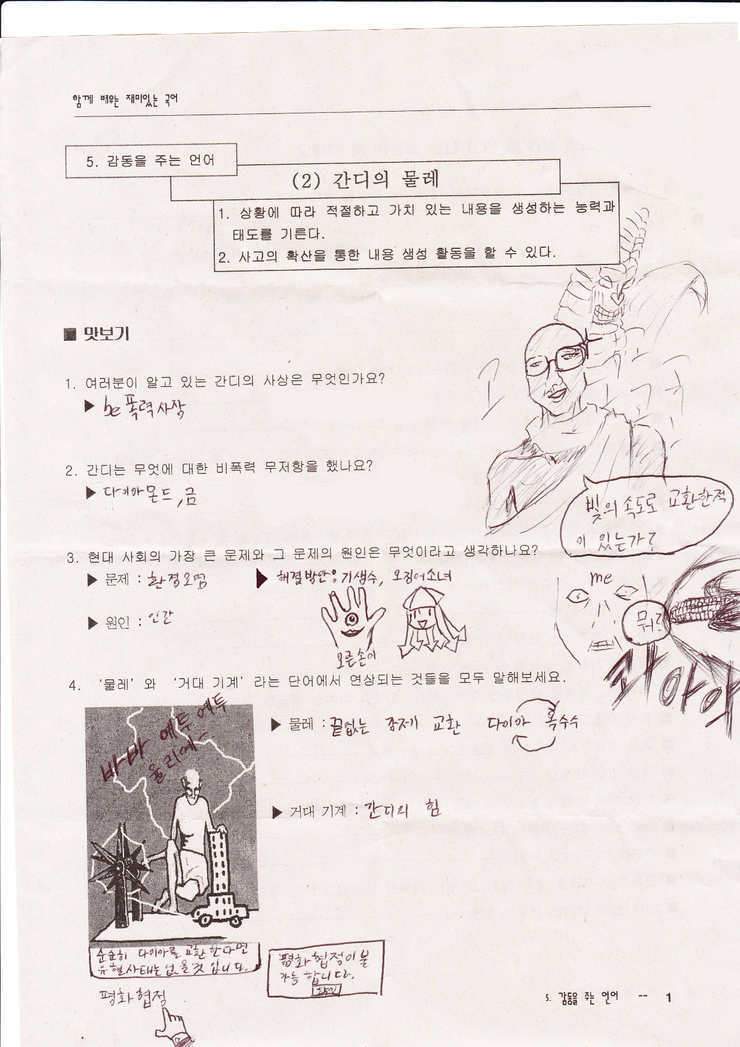 함께 배우는 재미있는 국어
5. 감동을 주는 언어
(2) 간디의 물레
1. 상황에 따라 적절하고 가치 있는 내용을 생성하는 능력과
태도를 기른다.
2. 사고의 확산을 통한 내용 생성 활동을 할 수 있다.
■ 맛보기
1. 여러분이 알고 있는 간디의 사상은 무엇인가요?
▶ be폭력사작
2. 간디는 무엇에 대한 비폭력 무저항을 했나요?
▶ 다이아몬드, 금
빛의 속도로 교환한적
이 있는가?
3. 현대 사회의 가장 큰 문제와 그 문제의 원인은 무엇이라고 생각하나요?
▶ 문제 : 환경오염
▶ 해결방안: 기생수, 오징어소녀
▶ 원인 : 인간
오른손이
me
뭐?
콰아아
4. '물레'와 '거대 기계'라는 단어에서 연상되는 것들을 모두 말해보세요.
바바 예투 예투
울리예~
▶ 물레 : 끝없는 중제 교환 다이아 옥수수
▶ 거대 기계 : 간디의 힘
순순히 다이아를 교환한다면
유혈사태는 없을 것입니다.
평화 협정이 불
가능 합니다.
평화 협정
5. 감동을 주는 언어 -- 1